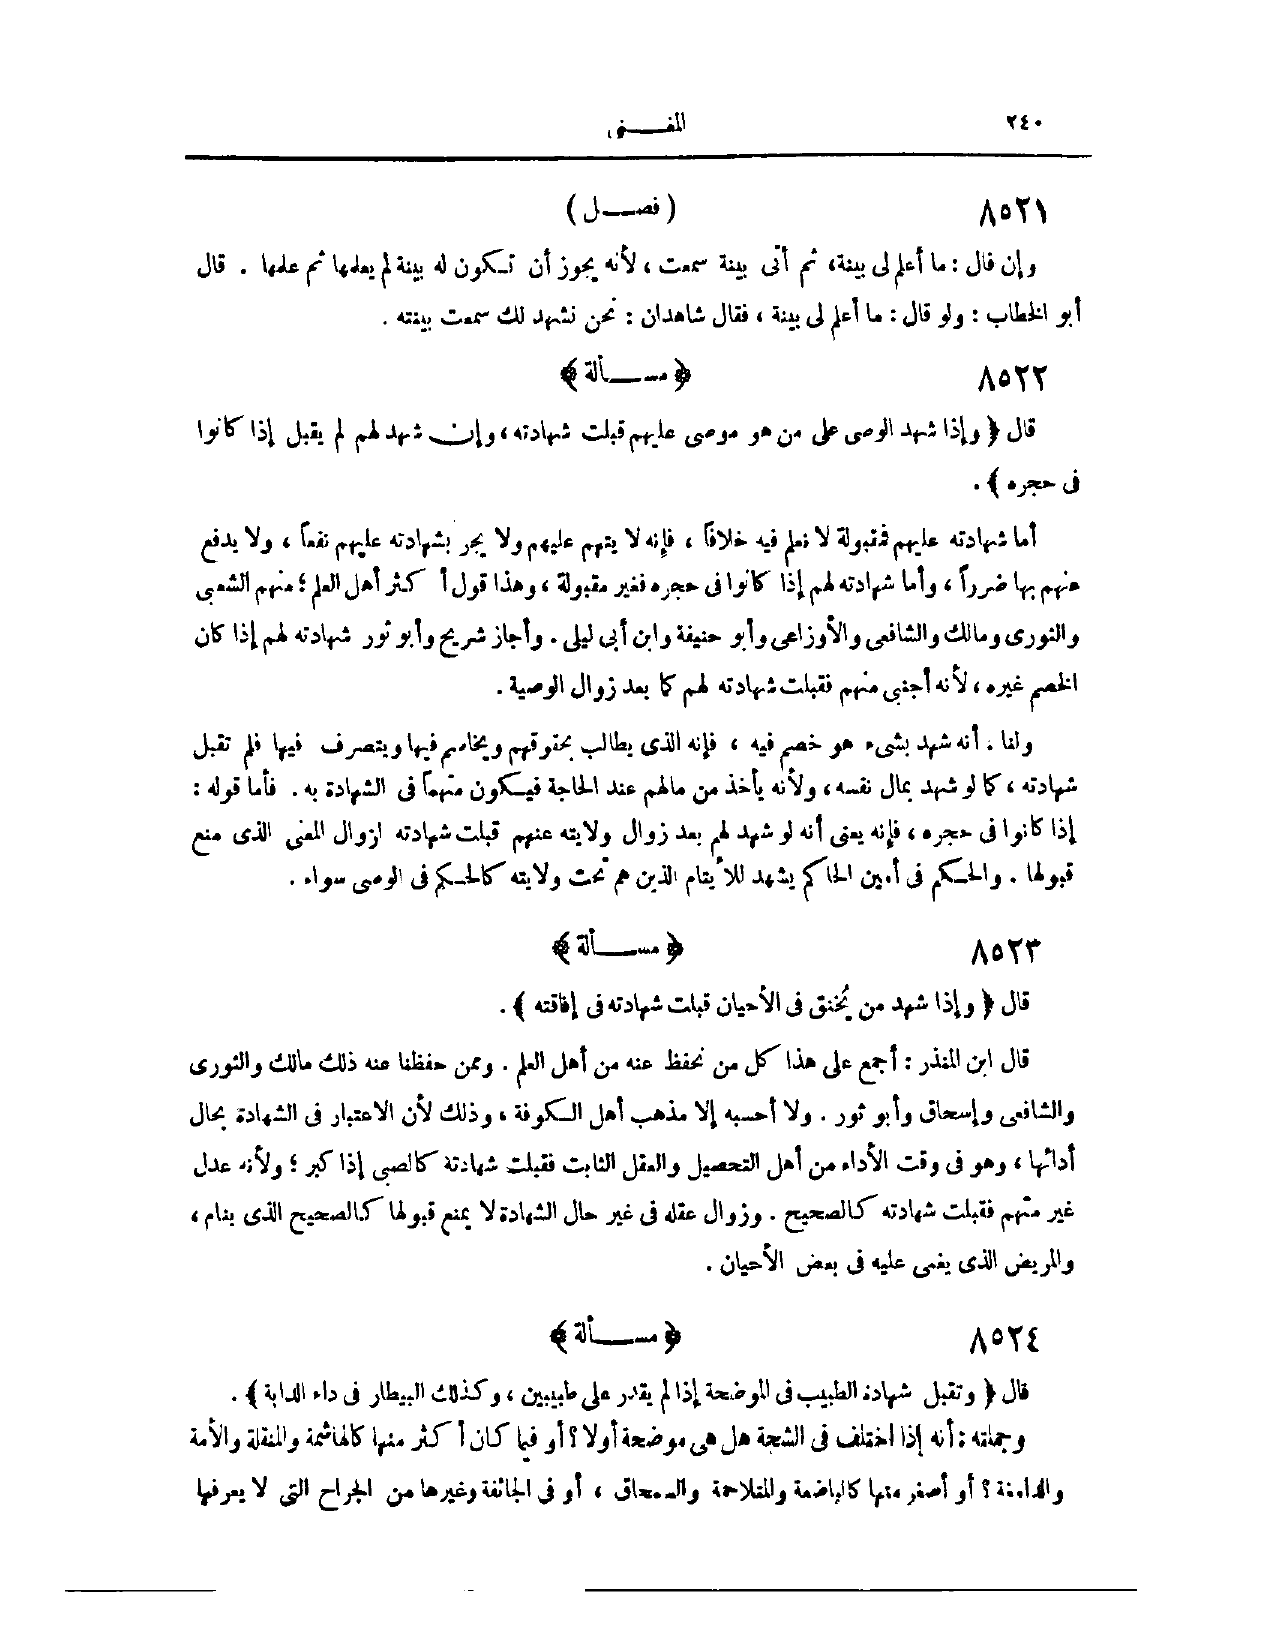 ٢٤٠ المغنى
٨٥٢١ ( فصل )
وإن قال : ما أعلم لى بينة، ثم أتى بينة سمعت ، لأنه يجوز أن تكون له بينة لم يعلمها ثم علمها . قال
أبو الخطاب : ولو قال : ما أعلم لى بينة ، فقال شاهدان : نحن نشهد لك سمعت بينته .
٨٥٢٢ ﴿ مسألة ﴾
قال ﴿ وإذا شهد الوصى على من هو موصى عليهم قبلت شهادته ، وإن شهد لهم لم يقبل إذا كانوا
فى حجره ﴾ .
أما شهادته عليهم فمقبولة لا نعلم فيه خلافاً ، فإنه لا يتهم عليهم ولا يجر بشهادته عليهم نفعاً ، ولا يدفع
عنهم بها ضرراً ، وأما شهادته لهم إذا كانوا فى حجره فغير مقبولة ، وهذا قول أكثر أهل العلم ؛ منهم الشعبى
والثورى ومالك والشافعى والأوزاعى وأبو حنيفة وابن أبى ليلى . وأجاز شريح وأبو ثور شهادته لهم إذا كان
الخصم غيره ، لأنه أجنبى منهم فقبلت شهادته لهم كما بعد زوال الوصية .
ولنا : أنه شهد بشىء هو خصم فيه ، فإنه الذى يطالب بحقوقهم ويخاصم فيها ويتصرف فيها فلم تقبل
شهادته ، كما لو شهد بمال نفسه ، ولأنه يأخذ من مالهم عند الحاجة فيكون متهماً فى الشهادة به . فأما قوله :
إذا كانوا فى حجره ، فإنه يعنى أنه لو شهد لهم بعد زوال ولايته عنهم قبلت شهادته لزوال المعنى الذى منع
قبولها . والحكم فى أمين الحاكم يشهد للأيتام الذين هم تحت ولايته كالحكم فى الوصى سواء .
٨٥٢٣ ﴿ مسألة ﴾
قال ﴿ وإذا شهد من يُخنق فى الأحيان قبلت شهادته فى إفاقته ﴾ .
قال ابن المنذر : أجمع على هذا كل من نحفظ عنه من أهل العلم . وممن حفظنا عنه ذلك مالك والثورى
والشافعى وإسحاق وأبو ثور . ولا أحسبه إلا مذهب أهل الكوفة ، وذلك لأن الاعتبار فى الشهادة بحال
أدائها ، وهو فى وقت الأداء من أهل التحصيل والعقل الثابت فقبلت شهادته كالصبى إذا كبر ؛ ولأنه عدل
غير متهم فقبلت شهادته كالصحيح . وزوال عقله فى غير حال الشهادة لا يمنع قبولها كالصحيح الذى ينام ،
والمريض الذى يغمى عليه فى بعض الأحيان .
٨٥٢٤ ﴿ مسألة ﴾
قال ﴿ وتقبل شهادة الطبيب فى الموضحة إذا لم يقدر على طبيبين ، وكذلك البيطار فى داء الدابة ﴾ .
وجملته : أنه إذا اختلف فى الشجة هل هى موضحة أولا ؟ أو فيما كان أكثر منها كالهاشمة والمنقلة والأمة
والدامغة ؟ أو أصغر منها كالباضعة والمتلاحمة والسمحاق ، أو فى الجائفة وغيرها من الجراح التى لا يعرفها